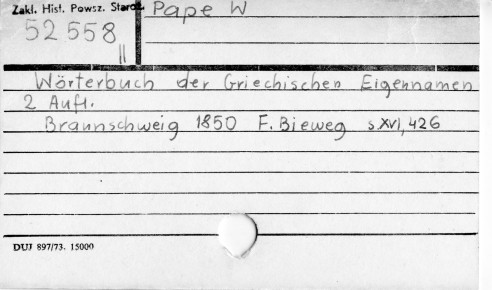 Zakł. Hist. Powsz. Staroż.
Pape W
52 558
II
Wörterbuch der Griechischen Eigennamen
2 Aufl.
Braunschweig 1850 F. Bieweg s. XVI, 426
DUJ 897/73. 15000